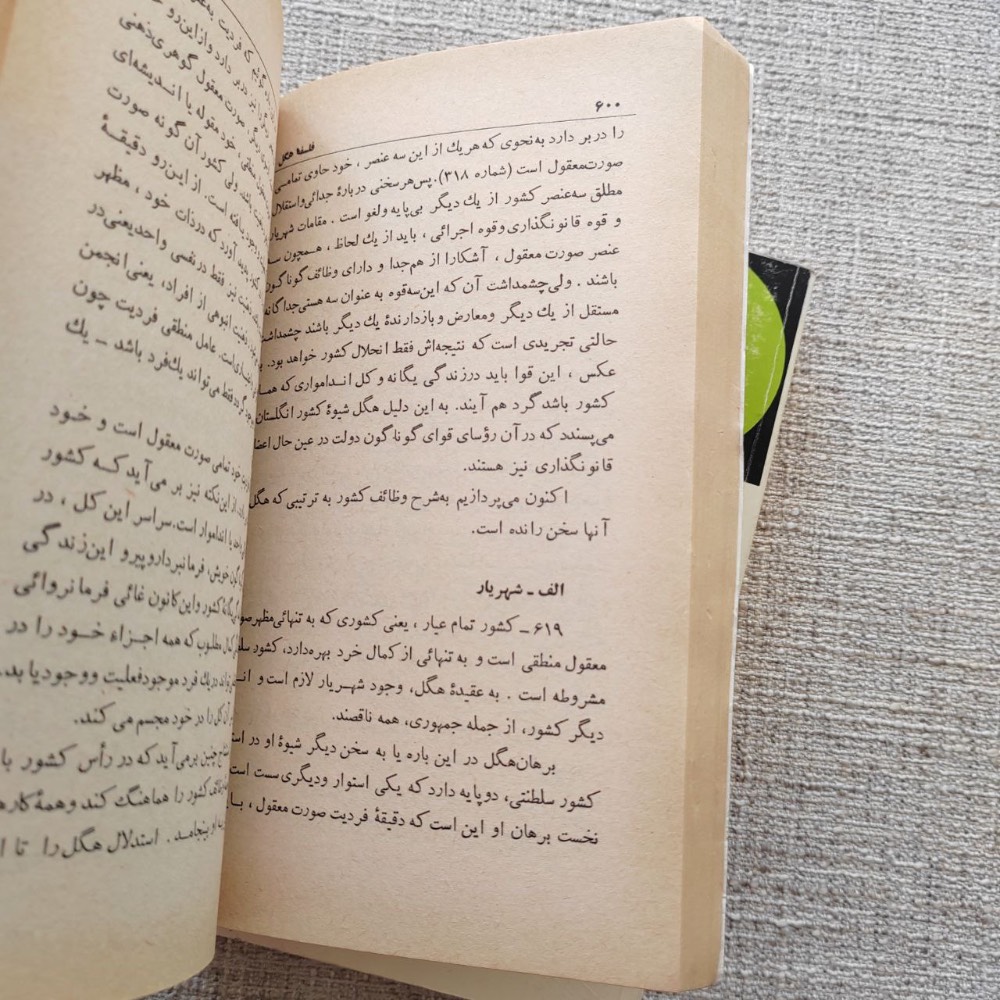 ۶۰۰
فلسفهٔ هگل
را در بر دارد به‌نحوی که هر یك از این سه عنصر ، خود حاوی تمامی
صورت معقول است (شماره ۳۱۸). پس هر سخنی دربارهٔ جدائی و استقلال
مطلق سه‌عنصر کشور از یك دیگر بی‌پایه ولغو است . مقامات شهریار
و قوه قانونگذاری وقوه اجرائی ، باید از یك لحاظ ، همچون سه
عنصر صورت معقول ، آشکارا از هم‌جدا و دارای وظائف گوناگون
باشند . ولی‌چشمداشت آن که این‌سه‌قوه به عنوان سه هستی‌جداگانه
مستقل از یك دیگر ومعارض و بازدارندهٔ یك دیگر باشند چشمداشت
حالتی تجریدی است که نتیجه‌اش فقط انحلال کشور خواهد بود.
عکس ، این قوا باید درزندگی یگانه و کل اندامواری که
کشور باشد گرد هم آیند. به این دلیل هگل شیوهٔ کشور انگلستان
می‌پسندد که در آن رؤسای قوای گوناگون دولت در عین حال اعضا
قانونگذاری نیز هستند.
اکنون می‌پردازیم به‌شرح وظائف کشور به ترتیبی که هگل
آنها سخن رانده است.
الف ـ شهریار
۶۱۹ـ کشور تمام عیار ، یعنی کشوری که به تنهائی مظهر
معقول منطقی است و به تنهائی از کمال خرد بهره‌دارد، کشور
مشروطه است . به عقیدهٔ هگل، وجود شهریار لازم است و
دیگر کشور، از جمله جمهوری، همه ناقصند.
برهان‌هگل در این باره یا به سخن دیگر شیوهٔ او در
کشور سلطنتی، دوپایه دارد که یکی استوار ودیگری سست است
نخست برهان او این است که دقیقهٔ فردیت صورت معقول ،
گوئیم که فردیت
در بر دارد وازاین‌رو
صورت معقول گوهری‌ذهنی
خود مقوله یا اندیشه‌ای
ولی کشور آن گونه صورت
وجود یافته است. از این‌رو دقیقهٔ
پدید آورد که درذات خود ، مظهر
نیز فقط در نفسی واحد یعنی‌در
انبوهی از افراد، یعنی‌انجمن
است. عامل منطقی فردیت چون
فقط می‌تواند یك‌فرد باشد ـ یك
خود تمامی صورت معقول است و خود
از این‌نکته نیز بر می‌آید که کشور
یا اندامواز است.سراسر این کل ، در
گون خویش، فرمانبردار وپیرو این‌زندگی
کشور واین‌کانون غائی فرمانروائی
مطلوب که همه اجزاء خود را در
دریك فرد موجود فعلیت ووجود یابد.
آن کل را در خود مجسم می کند.
چنین برمی‌آید که در رأس کشور
کشور را هماهنگ کند وهمهٔ
او بینجامد . استدلال هگل را تا